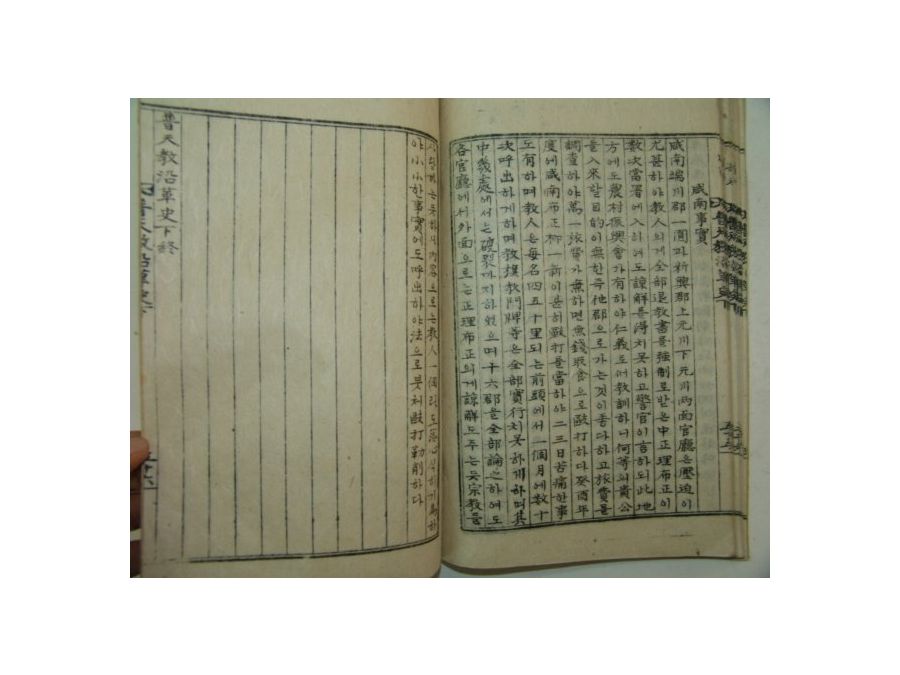 咸南事實
咸南端川郡一圓과新興郡上元川下元川兩面官廳은壓迫이
尤甚하야敎人의게全部退敎書를强制로받은中正理布正이
數次當署에入하여도諒解를得치못하고警官이言하되此地
方에도農村振興會가有하야仁義도어敎訓하니何等의貴公
을入來할目的이無한즉他郡으로가는것이좋다하고旅費를
調査하야萬一旅費가無하면無錢取食으로毆打하다癸酉年
度에咸南布正柳一新이은히毆打를當하야二三日苦痛한事
도有하며敎人은每名四五十里되는前頭에서一個月에數十
次呼出하게하며敎旗敎門牌等은全部實行치못하게하며其
中幾處에서는破裂까지하였으며十六郡을全部論之하여도
各官廳에서外面으로는正理布正의게諒解도주는듯宗敎를
하는듯하나內容으로는敎人一個라도
야小小한事實에도呼出하야法으로붓처毆打勒削하다
普天敎沿革史下終
普天敎沿革史下